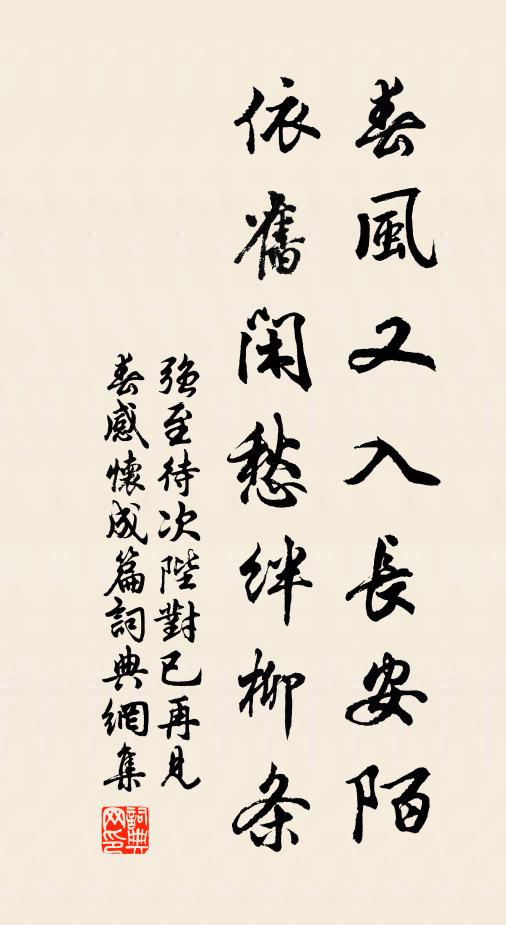 春風又入長安陌
依舊閑愁絆柳条
強至待次陛對已再見
春感懷成篇詞典網集
詞典
网印